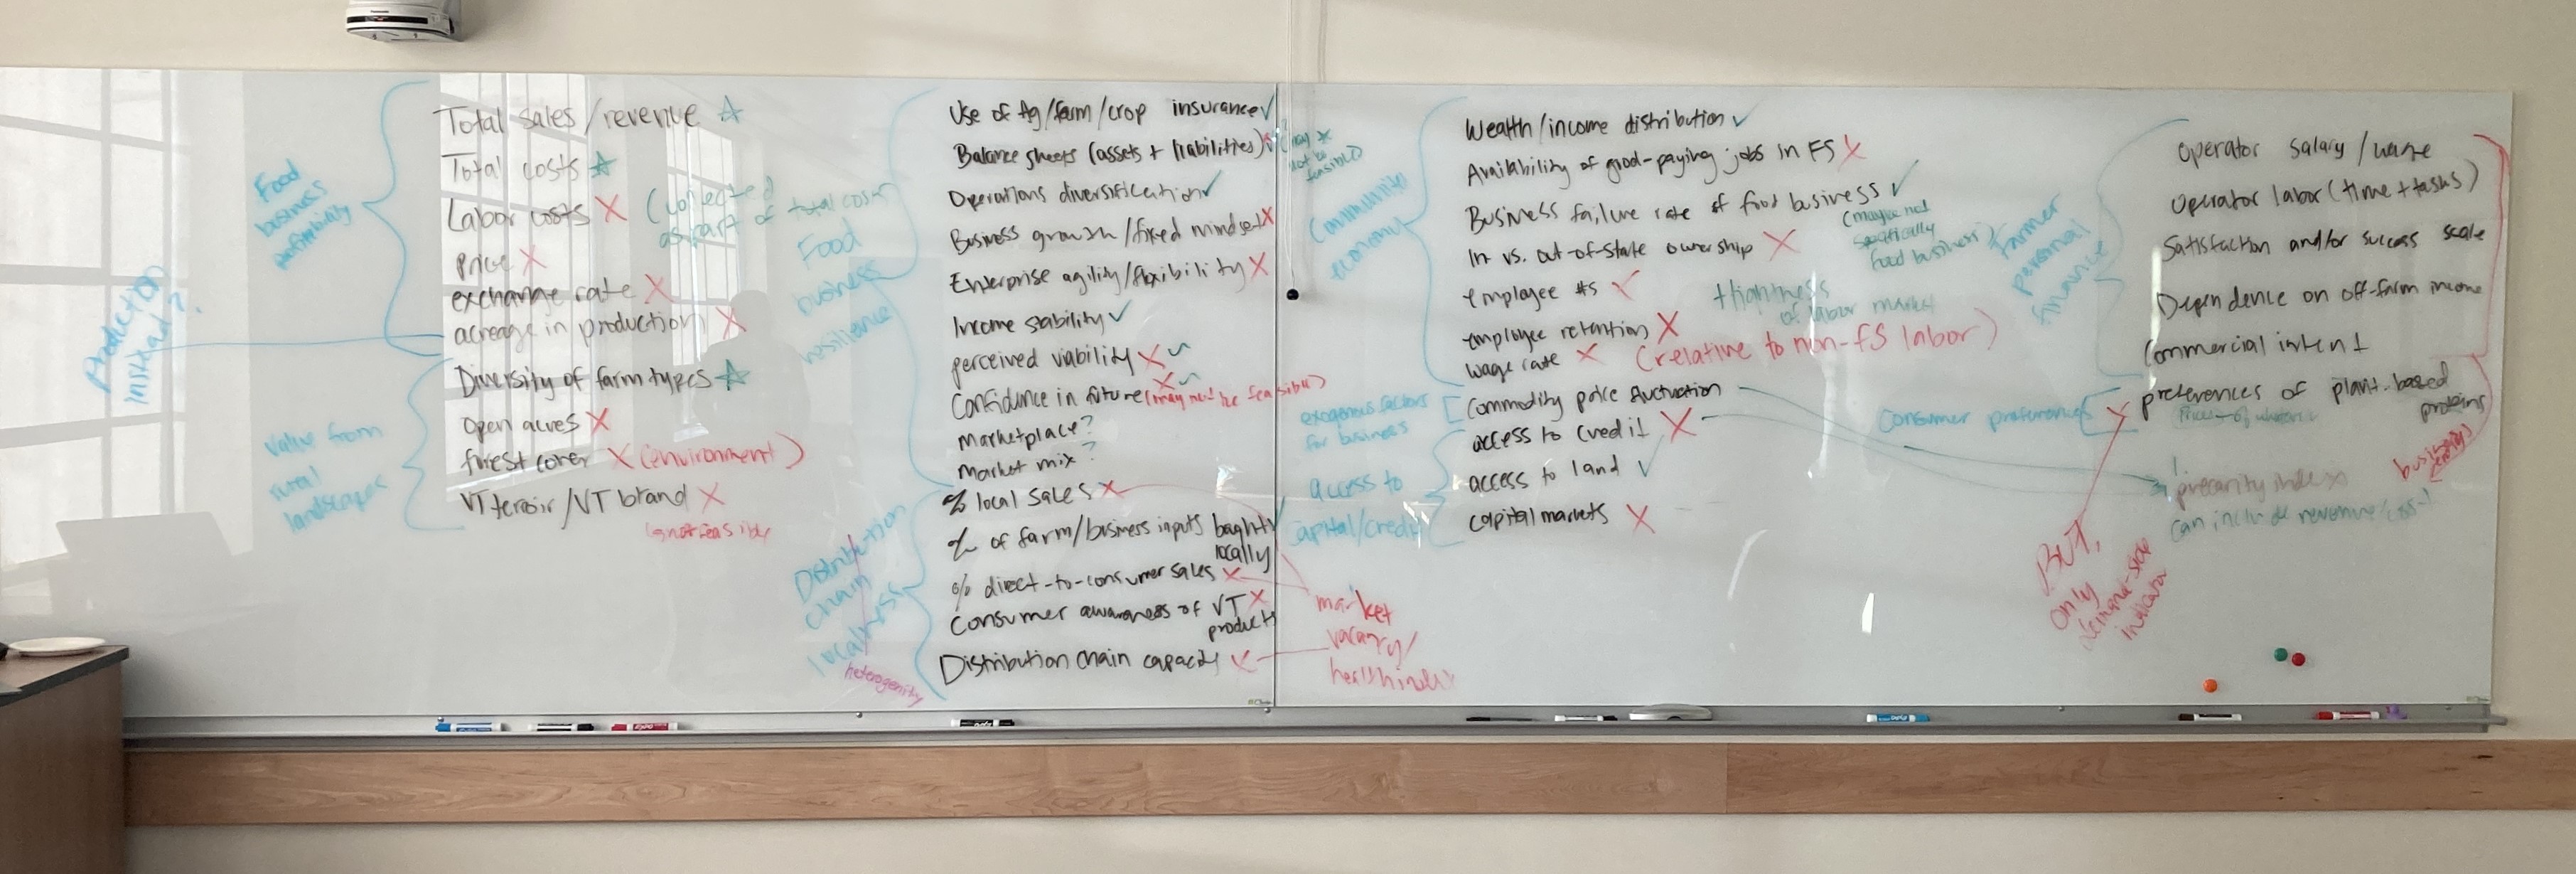 Food
business
profitability
Total sales/revenue ☆
Total costs ☆
Labor costs X (collected
as part of total costs
price X
exchange rate X
acreage in production X
Production
instead?
Value from
rural
landscapes
Diversity of farm types ☆
Open acres X
forest cover X (environment)
VT terroir/VT brand X
not feasible
Food
business
resilience
Use of Ag/farm/crop insurance ✓
Balance sheets (assets + liabilities)
(may
not be
feasible)
Operations diversification ✓
Business growth/fixed mindset X
Enterprise agility/flexibility X
Income stability ✓
perceived viability X ~
Confidence in future X ~ (may not be feasible)
Marketplace?
Market mix?
Distribution
chain
localness
heterogenity
% local sales X
% of farm/business inputs bought ✓
locally
% direct-to-consumer sales X
Consumer awareness of VT X
products
Distribution chain capacity X
market
vacancy/
health index
Community
economy
Wealth/income distribution ✓
Availability of good-paying jobs in FS X
Business failure rate of food business ✓
(maybe not
specifically
food business)
In vs. out-of-state ownership X
employee #s X
+tightness
of labor market
employee retention X
wage rate X (relative to non-FS labor)
exogenous factors
for business
Commodity price fluctuation
access to
capital/credit
access to credit X
access to land ✓
capital markets X
Farmer
personal
finance
Operator salary/wage
Operator labor (time + tasks)
Satisfaction and/or success scale
Dependence on off-farm income
Commercial intent
Consumer preferences
X preferences of plant-based
proteins
precarity index
can include revenue/cost
BUT,
only
demand-side
indicator